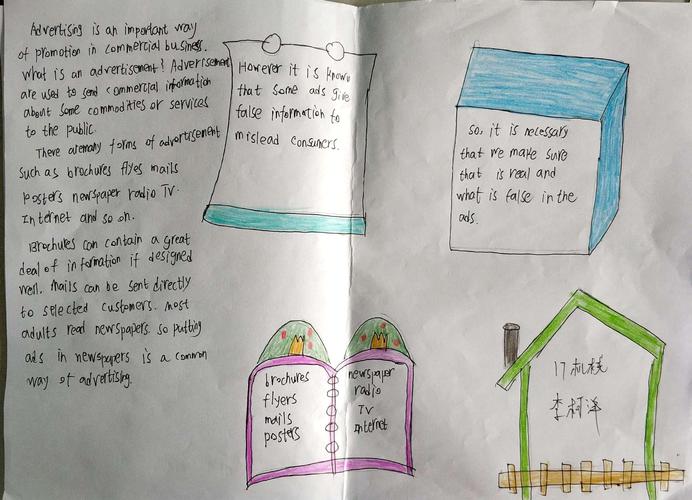 Advertising is an important way
of promotion in commercial business.
what is an advertisement? Adverisement
are used to send commercial information
about some commodities or services
to the public.
There aremany forms of advertisement
such as brochures flyes mails
posters newspaper radio TV.
Internet and so on.
Brochures can contain a great
deal of information if designed
well. Mails can be sent directly
to selected customers. most
adults read newspapers. so putting
ads in newspapers is a common
way of advertising.
However it is known
that some ads give
false information to
mislead consumers.
so, it is necessary
that we make sure
that is real and
what is false in the
ads.
brochures
flyers
mails
posters
newspaper
radio
TV
Internet
17机
李柯泽